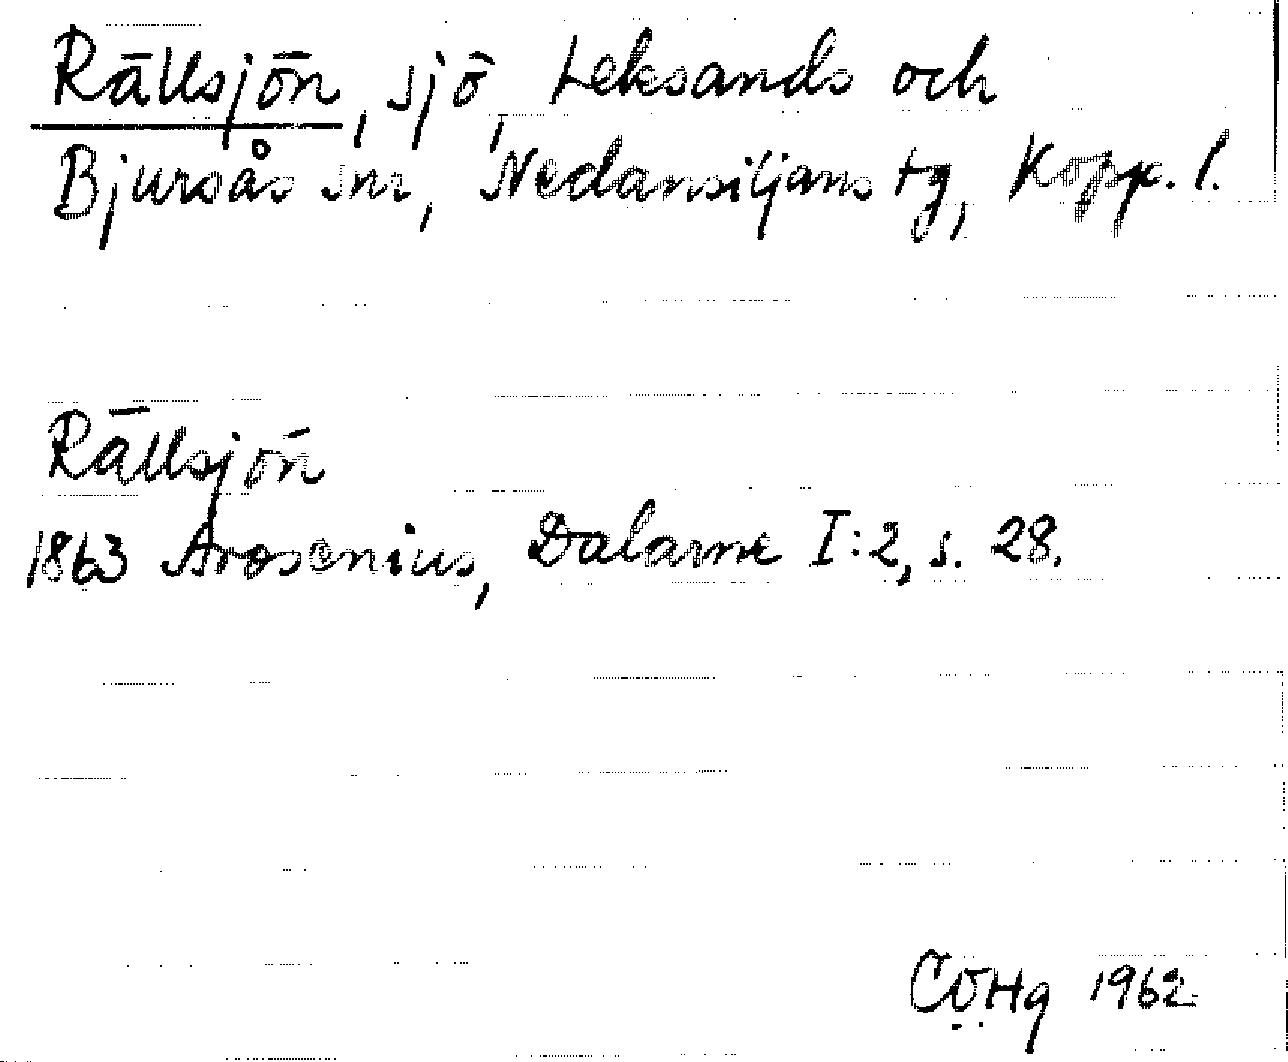 Rällsjön, sjö, Leksands och
Bjursås snr, Nedansiljans tg, Kopp. l.
Rällsjön
1863 Arosenius, Dalarne I:2, s. 28.
CÖHg 1962